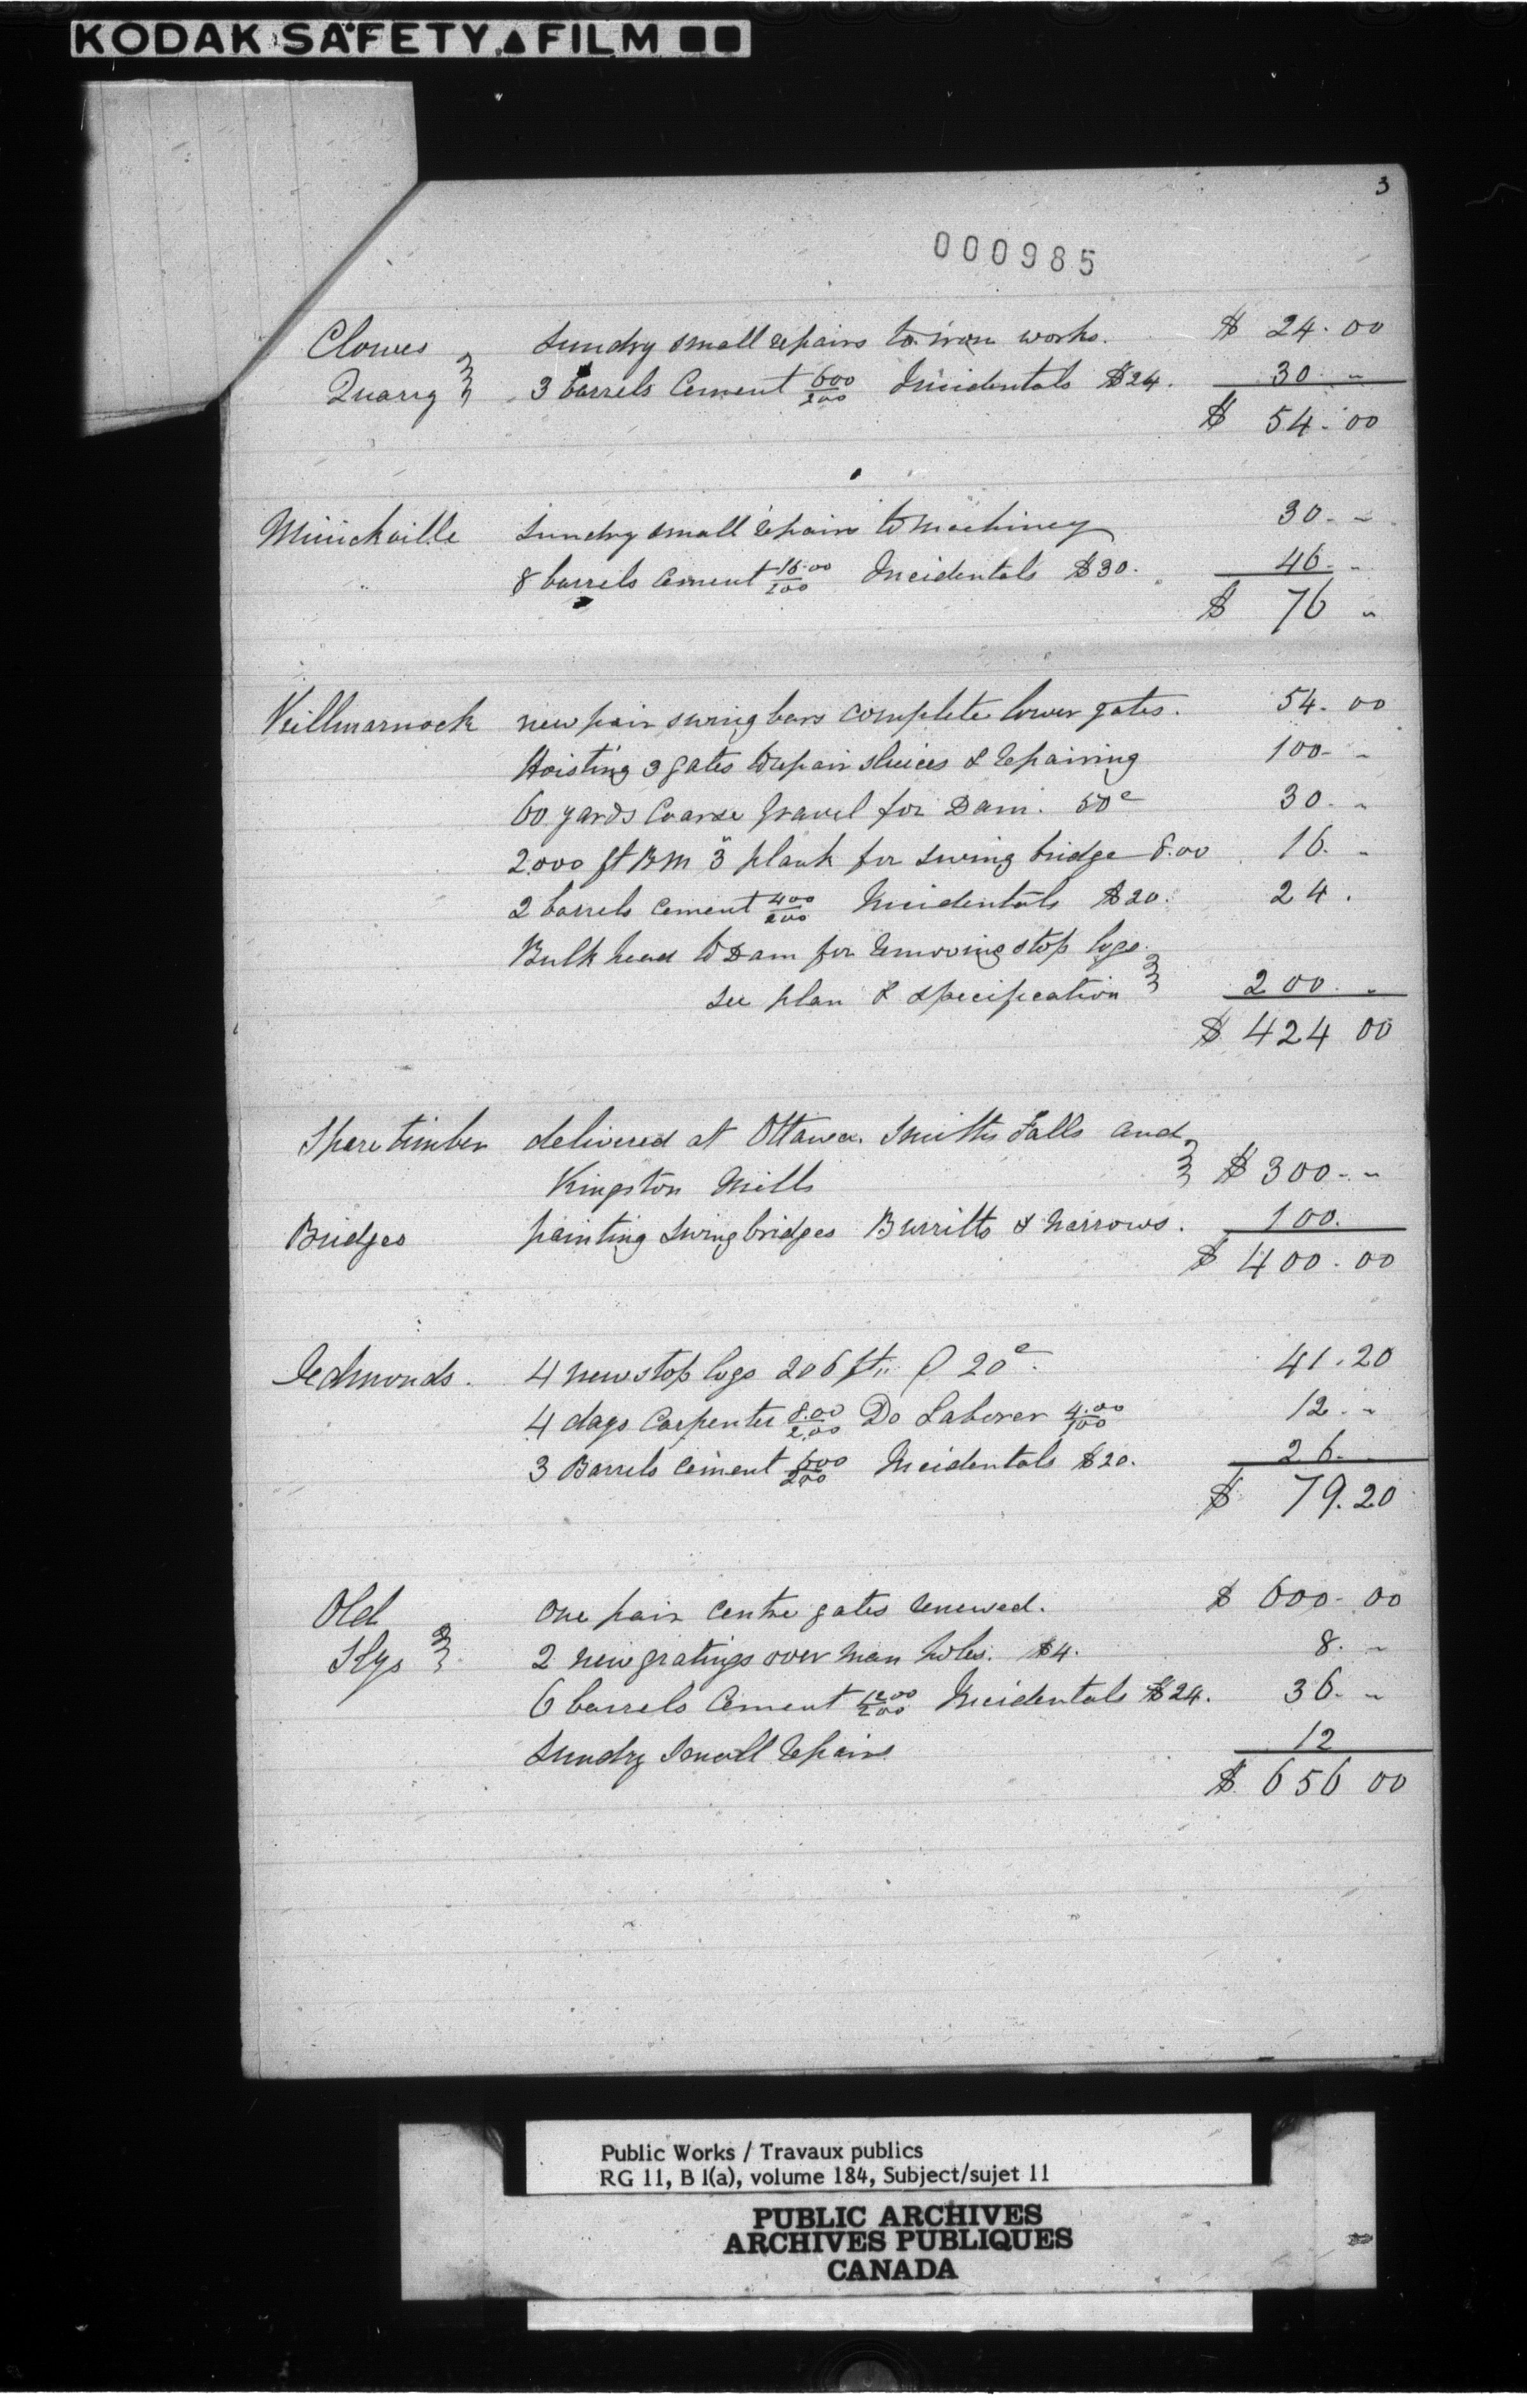 KODAK SAFETY FILM
3
000985
Clowes Sundry small repairs to iron works. $ 24.00
Quarry 3 barrels Cement 600/200 Incidentals $24. 30 "
$ 54.00
Mirickville Sundry small repairs to machinery 30. "
" 8 barrels Cement 16.00/200 Incidentals $30. 46. "
$ 76 "
Killmarnock new pair swing bars complete lower gates. 54.00
Hoisting 3 gates to repair sluices & repairing 100 "
60 yards Coarse Gravel for Dam. 50c 30. "
2.000 ft BM 3" plank for swing bridge 8.00 16. "
2 barrels cement 400/200 Incidentals $20. 24.
Bulk head to Dam for removing stop logs.
see plan & specification 200. "
$ 424 00
Spare timber delivered at Ottawa. Smiths Falls and
Kingston Mills $ 300. "
Bridges painting swing bridges Burritts & Narrows. 100.
$ 400.00
Edmonds. 4 new stop logs 206 ft. @ 20c. 41.20
4 days Carpenter 8.00/2.00 Do Laborer 4.00/100 12. "
3 Barrels cement 600/200 Incidentals $20. 26.
$ 79.20
Old One pair centre gates renewed. $ 600.00
Slys 2 new gratings over man holes. $4. 8. "
6 barrels Cement 12.00/200 Incidentals $24. 36. "
Sundry small repairs 12
$ 656 00
Public Works / Travaux publics
RG 11, B 1(a), volume 184, Subject/sujet 11
PUBLIC ARCHIVES
ARCHIVES PUBLIQUES
CANADA